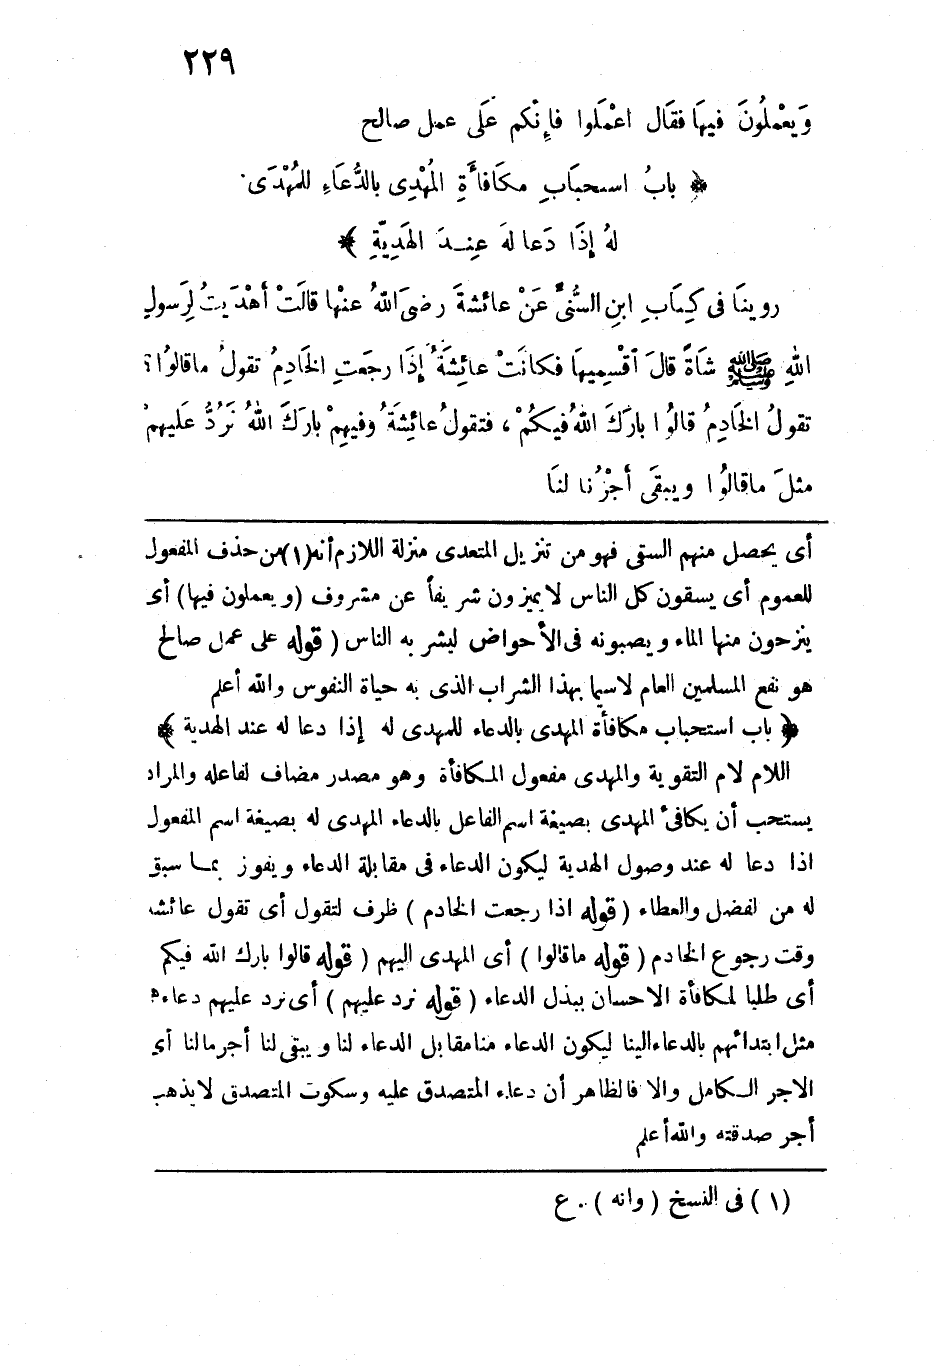 ٢٢٩
وَيعْملُونَ فيهَا فقَال اعْمَلوا فإِنْكم عَلَى عمل صالح
﴿ بابُ استحبَابِ مكَافأَةِ المُهْدِى بالدُّعَاءِ للمُهْدَى
لهُ إِذَا دَعا لهَ عِنـدَ الهَدِيّةِ ﴾
روينَا فى كِتَابِ ابنِ السُّنىِّ عَنْ عائشةَ رضىَ اللهُ عنْها قالَتْ أهْدَيتُ لِرَسولِ
اللهِ ﷺ شَاةً قالَ اقْسِميهَا فكانَتْ عائِشَةُ إِذَا رجعَتِ الخَادِمُ تقولُ ماقالوُا؟
تقولُ الخَادِمُ قالوُا بارَكَ اللهُ فيكُمْ ، فتقولُ عائِشَةُ وفيهِمْ بارَكَ اللهُ نَرُدُّ عَليهمْ
مثلَ ماقالوُا ويبقَى أجْرُنا لنَا
أى يحصل منهم السقى فهو من تنزيل المتعدى منزلة اللازم أنه (١) من حذف المفعول
للعموم أى يسقون كل الناس لايميزون شريفاً عن مشروف (ويعملون فيها) أى
ينزحون منها الماء ويصبونه فى الأحواض ليشربه الناس (قوله على عمل صالح
هو نفع المسلمين العام لاسيما بهذا الشراب الذى به حياة النفوس والله أعلم
﴿ باب استحباب مكافأة المهدى بالدعاء للمهدى له إذا دعا له عند الهدية ﴾
اللام لام التقوية والمهدى مفعول المكافأة وهو مصدر مضاف لفاعله والمراد
يستحب أن يكافئ المهدى بصيغة اسم الفاعل بالدعاء المهدى له بصيغة اسم المفعول
اذا دعا له عند وصول الهدية ليكون الدعاء فى مقابلة الدعاء ويفوز بمـا سبق
له من لفضل والعطاء (قوله اذا رجعت الخادم) ظرف لتقول أى تقول عائشة
وقت رجوع الخادم (قوله ماقالوا) أى المهدى اليهم (قوله قالوا بارك الله فيكم
أى طلبا لمكافأة الاحسان ببذل الدعاء (قوله نرد عليهم) أى نرد عليهم دعاءه
مثل ابتدائهم بالدعاء الينا ليكون الدعاء منا مقابل الدعاء لنا ويبقى لنا أجر مالنا أى
الاجر الـكامل والا فالظاهر أن دعاء المتصدق عليه وسكوت المتصدق لايذهب
أجر صدقته والله أعلم
(١) فى النسخ (وانه). ع